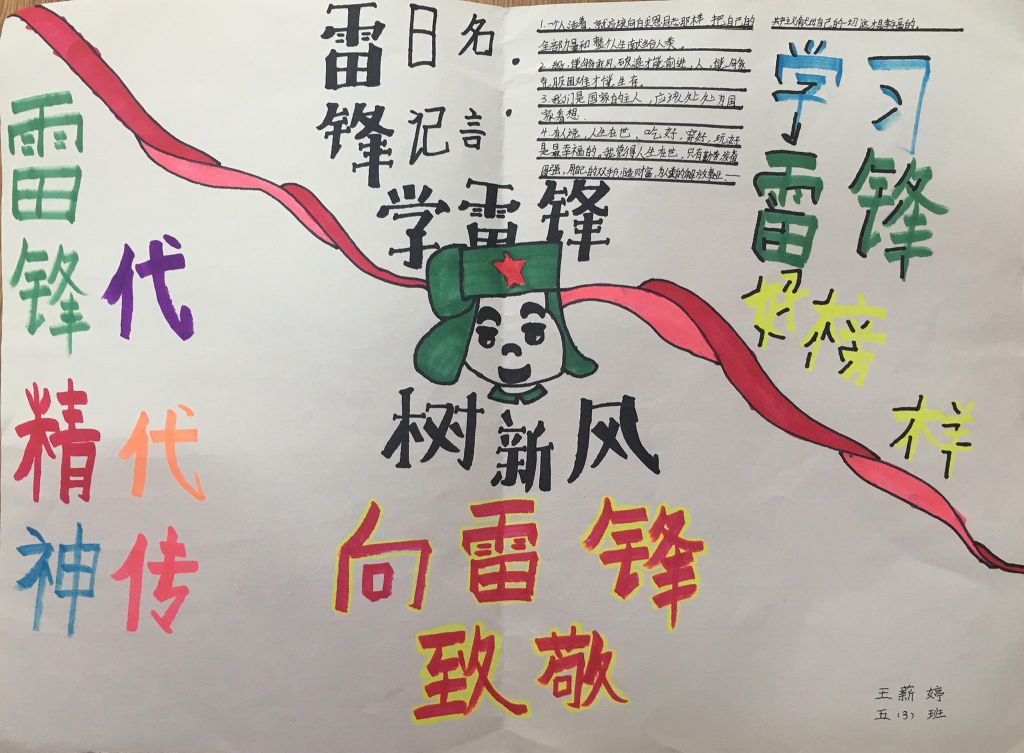 雷锋
日记
名言：
1.一个人活着，就应该向白求恩同志那样，把自己的
全部力量和整个人生献给人类。
2.船，能够乘风破浪才能前进，人，能够
克服困难才能生存。
3.我们是国家的主人，应该处处为国
家着想.
4.有人说，人生在世，吃好，穿好，玩好
是最幸福的。我觉得人生在世，只有勤劳，发奋
图强，用自己的双手创造财富，为人类的解放事业——
共产主义献出自己的一切 这才是幸福的。
学习
雷锋
好榜
样
学雷锋
树新风
向雷锋
致敬
雷锋精神
代代传
王薪婷
五（3）班